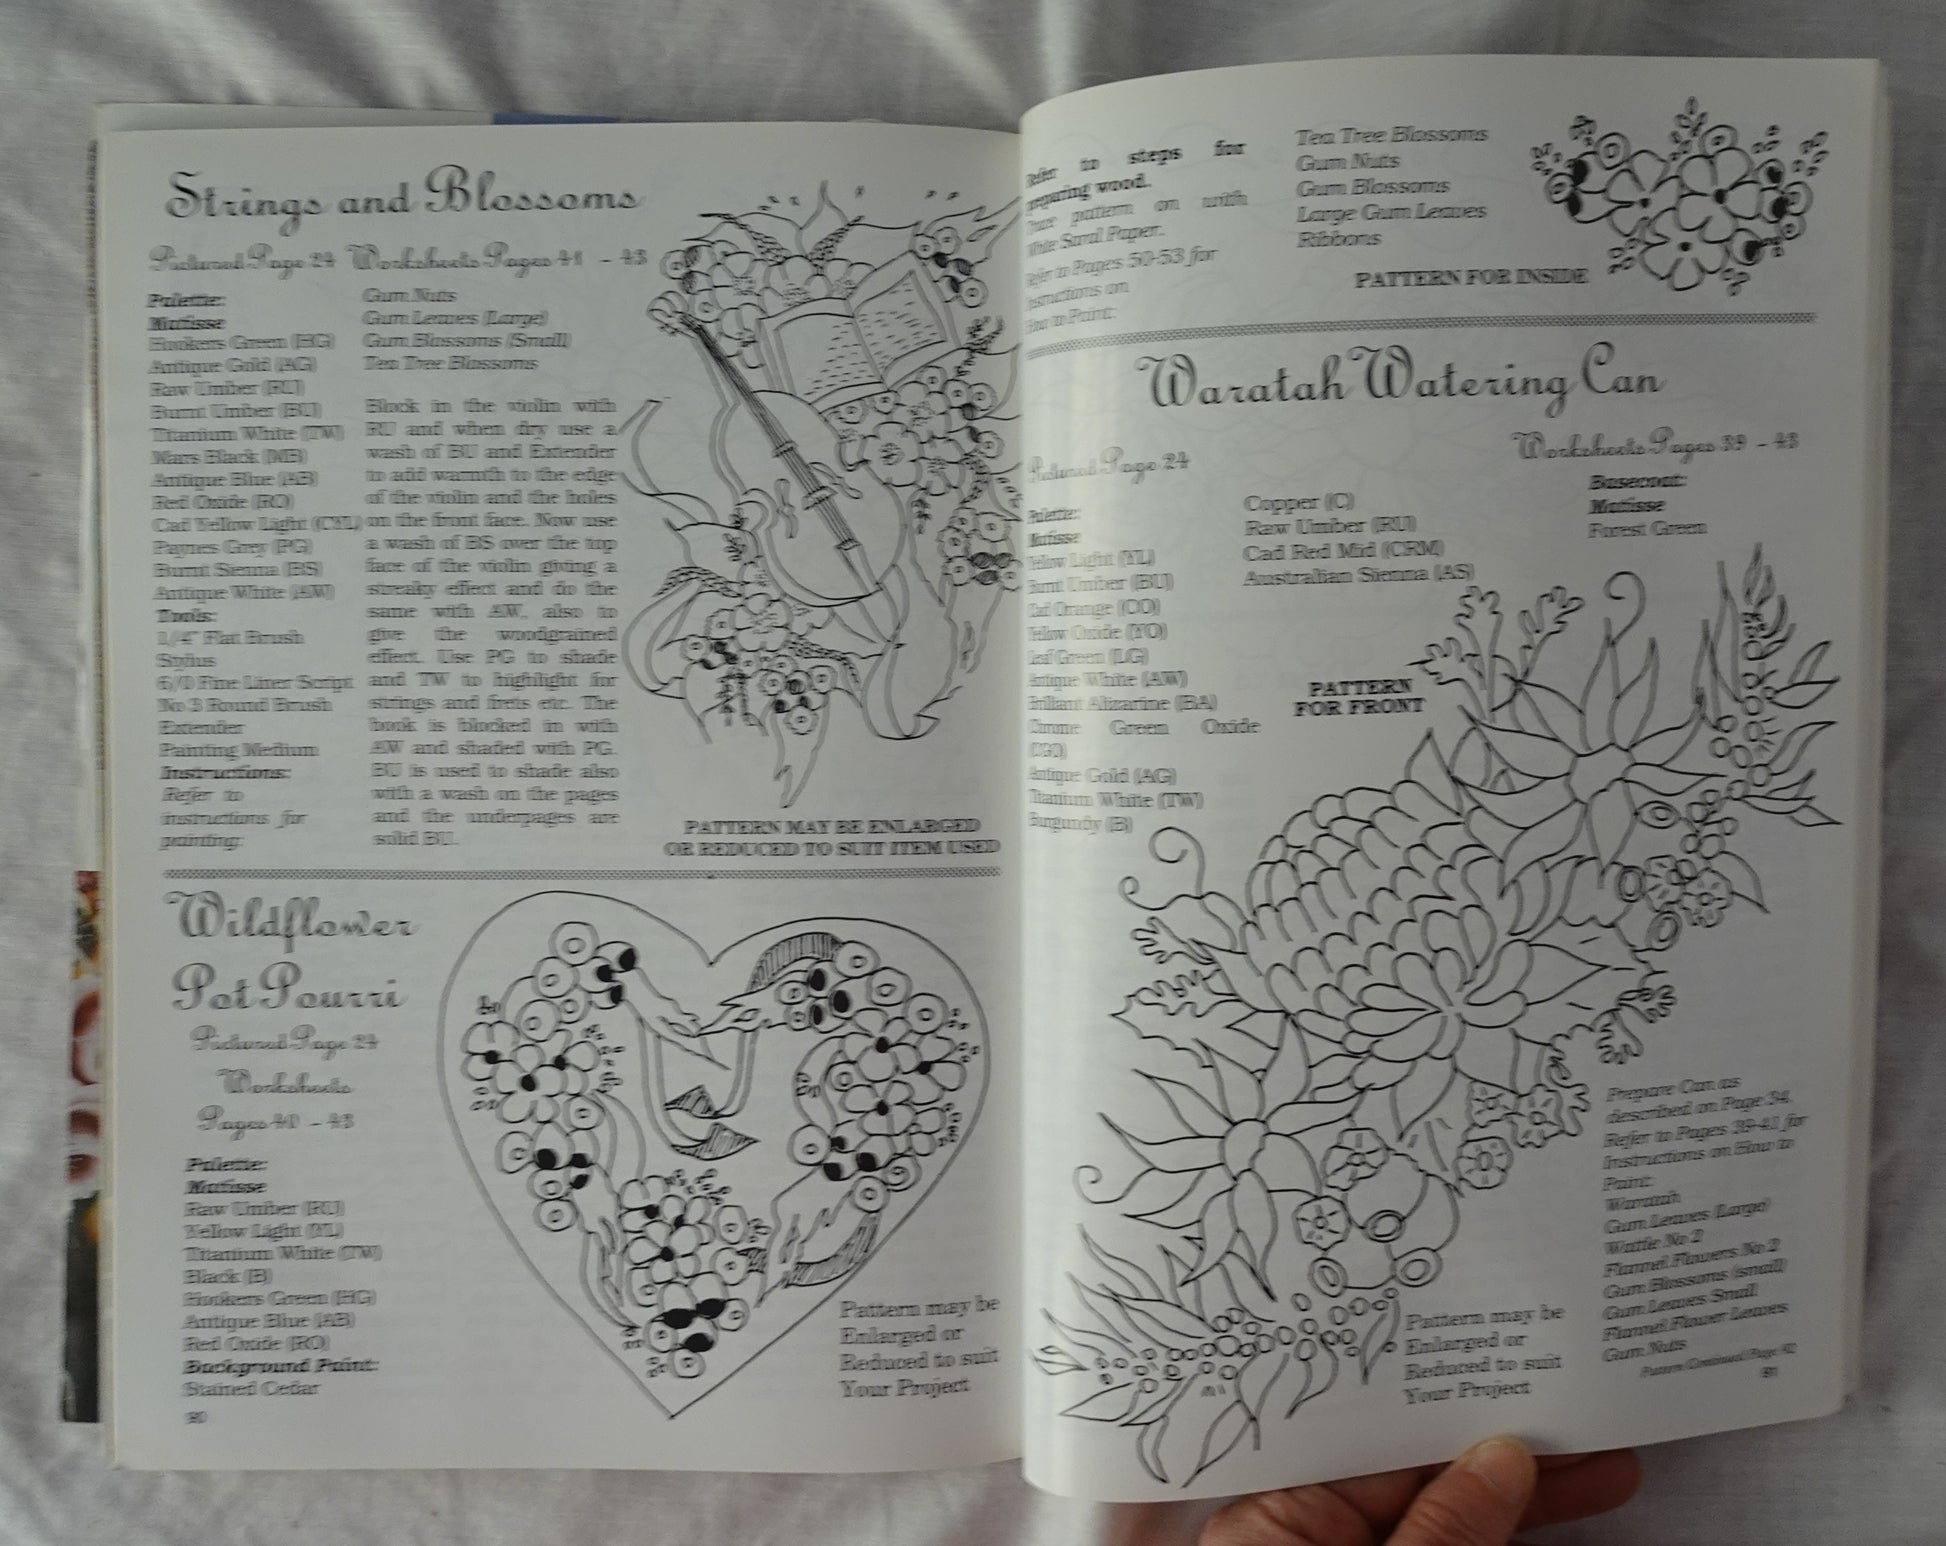 Strings and Blossoms
Pictured Page 24 Worksheets Pages 41 - 43
Palette:
Matisse
Hookers Green (HG)
Antique Gold (AG)
Raw Umber (RU)
Burnt Umber (BU)
Titanium White (TW)
Mars Black (MB)
Antique Blue (AB)
Red Oxide (RO)
Cad Yellow Light (CYL)
Paynes Grey (PG)
Burnt Sienna (BS)
Antique White (AW)
Tools:
1/4" Flat Brush
Stylus
6/0 Fine Liner Script
No 3 Round Brush
Extender
Painting Medium
Instructions:
Refer to
instructions for
painting:
Gum Nuts
Gum Leaves (Large)
Gum Blossoms (Small)
Tea Tree Blossoms
Block in the violin with
RU and when dry use a
wash of BU and Extender
to add warmth to the edge
of the violin and the holes
on the front face. Now use
a wash of BS over the top
face of the violin giving a
streaky effect and do the
same with AW, also to
give the woodgrained
effect. Use PG to shade
and TW to highlight for
strings and frets etc. The
book is blocked in with
AW and shaded with PG.
BU is used to shade also
with a wash on the pages
and the underpages are
solid BU.
PATTERN MAY BE ENLARGED
OR REDUCED TO SUIT ITEM USED
Wildflower
Pot Pourri
Pictured Page 24
Worksheets
Pages 40 - 43
Palette:
Matisse
Raw Umber (RU)
Yellow Light (YL)
Titanium White (TW)
Black (B)
Hookers Green (HG)
Antique Blue (AB)
Red Oxide (RO)
Background Paint:
Stained Cedar
Pattern may be
Enlarged or
Reduced to suit
Your Project
90
Refer to steps for
preparing wood.
Trace pattern on with
White Saral Paper.
Refer to Pages 50-53 for
instructions on
How to Paint:
Tea Tree Blossoms
Gum Nuts
Gum Blossoms
Large Gum Leaves
Ribbons
PATTERN FOR INSIDE
Waratah Watering Can
Pictured Page 24
Worksheets Pages 39 - 43
Palette:
Matisse
Yellow Light (YL)
Burnt Umber (BU)
Cad Orange (CO)
Yellow Oxide (YO)
Leaf Green (LG)
Antique White (AW)
Brilliant Alizarine (BA)
Chrome Green Oxide
(CGO)
Antique Gold (AG)
Titanium White (TW)
Burgundy (B)
Copper (C)
Raw Umber (RU)
Cad Red Mid (CRM)
Australian Sienna (AS)
Basecoat:
Matisse
Forest Green
PATTERN
FOR FRONT
Prepare Can as
described on Page 34.
Refer to Pages 39-41 for
Instructions on How to
Paint:
Waratah
Gum Leaves (Large)
Wattle No 2
Flannel Flowers No 2
Gum Blossoms (small)
Gum Leaves Small
Flannel Flower Leaves
Gum Nuts
Pattern Continued Page 92
Pattern may be
Enlarged or
Reduced to suit
Your Project
91